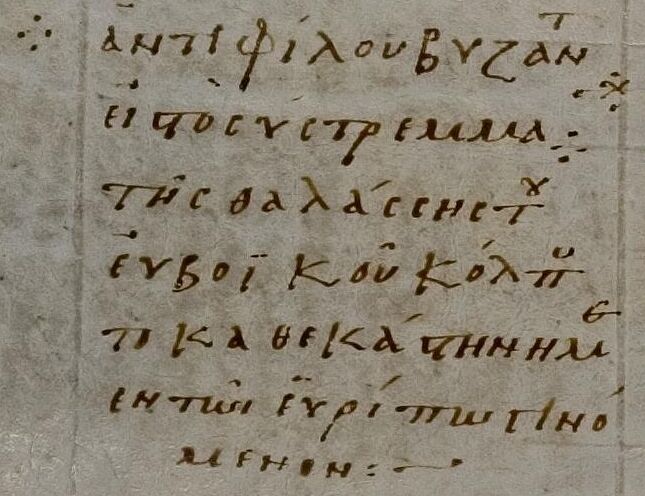 ἀντιφίλου βυζαν̅τ
εἰς τὸ σύστρεμμα
τῆς θαλάσσης τοῦ
εὐβοϊκοῦ κόλπου
τὸ καθεκάστην ημε
ἐν τῶι εὐρίπω γινό
μενον:~